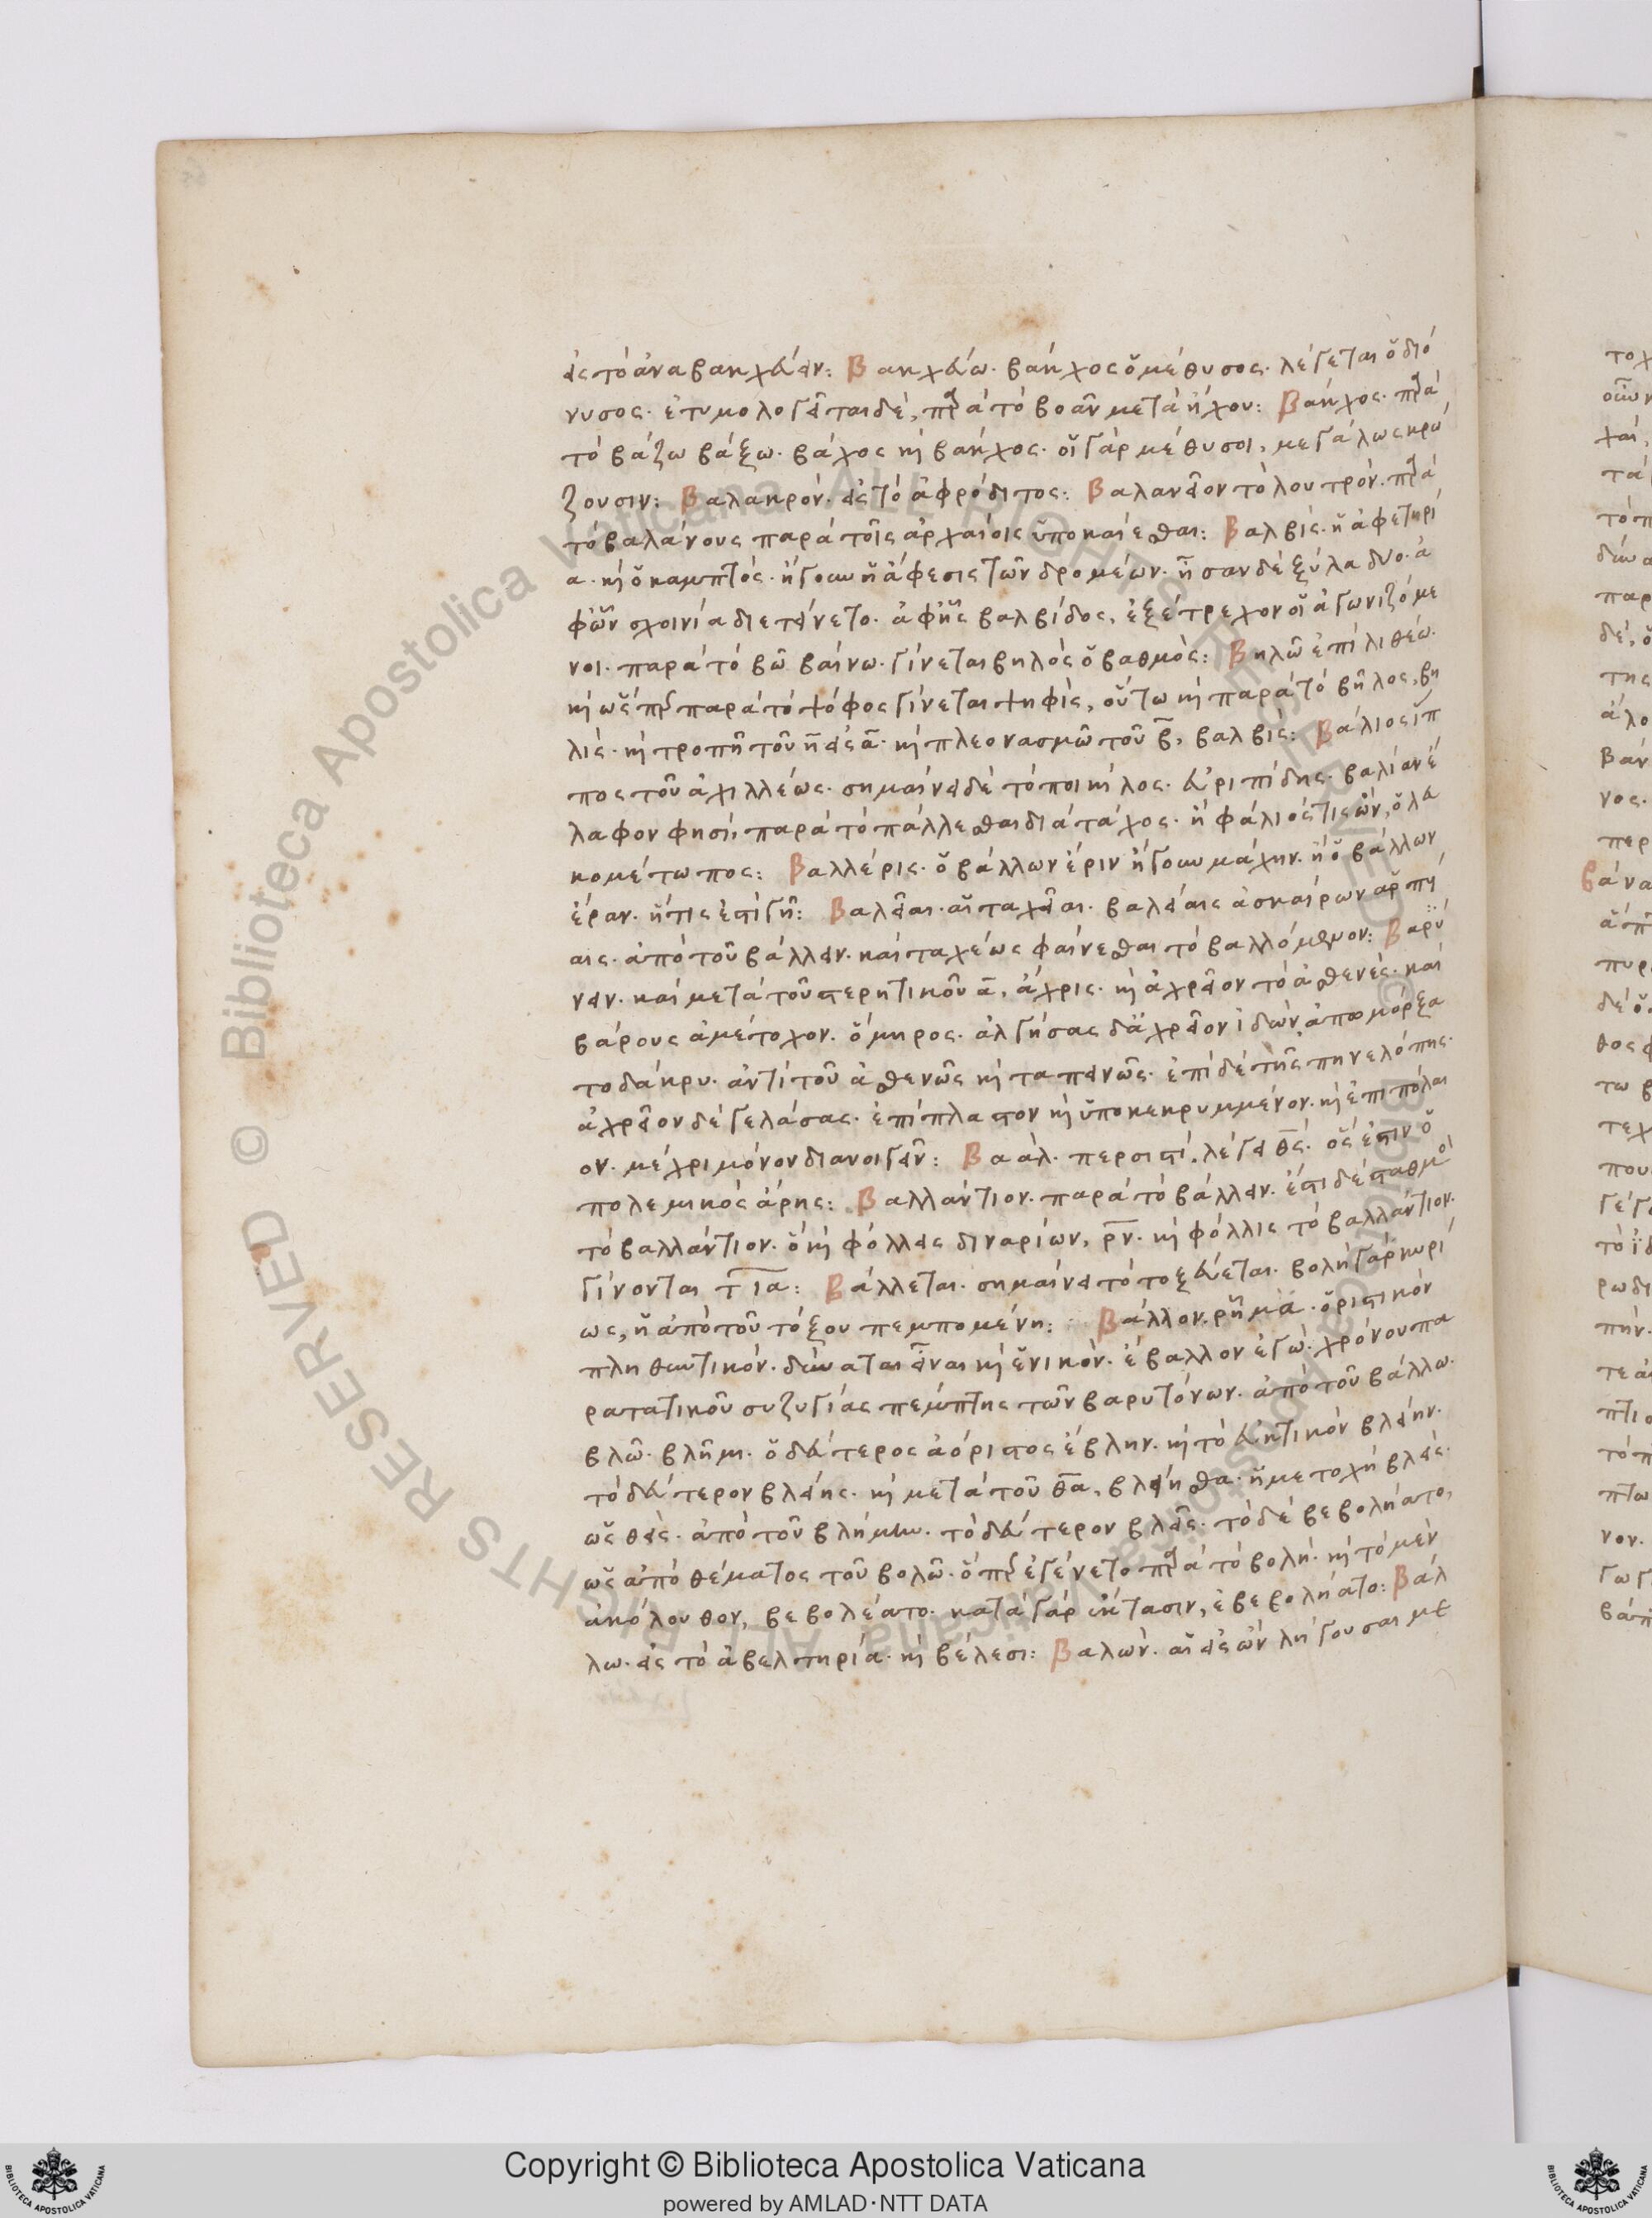 εἰς τὸ ἀναβακχεύειν: Βακχεύω. βάκχος ὁ μέθυσος. λέγεται ὁ διό
νυσος. ἐτυμολογεῖται δὲ, παρὰ τὸ βοᾶν μετὰ ἤχου: Βάκχος. παρὰ
τὸ βάζω βάξω. βάχος καὶ βάκχος. οἱ γὰρ μέθυσοι, μεγάλως κρά
ζουσιν: Βαλακρόν. εἰς τὸ ἀφρόδιτος: Βαλανεῖον τὸ λουτρόν. παρὰ
τὸ βαλάνους παρὰ τοῖς ἀρχαίοις ὑποκαίεσθαι: Βαλβίς. ἡ ἀφετηρί
α. καὶ ὁ καμπτός. ἤγουν ἡ ἄφεσις τῶν δρομέων. ἦσαν δὲ ξύλα δύο. ἀ
φ' ὧν σχοινία διετείνετο. ἀφ' ἧς βαλβίδος, ἐξέτρεχον οἱ ἀγωνιζόμε
νοι. παρὰ τὸ βῶ βαίνω. γίνεται βηλὸς ὁ βαθμὸς: Βηλῶ ἐπὶ λιθέω.
καὶ ὥσπερ παρὰ τὸ ψόφος γίνεται ψηφὶς, οὕτω καὶ παρὰ τὸ βῆλος, βη
λίς. καὶ τροπῇ τοῦ η εἰς α. καὶ πλεονασμῶ τοῦ β, βαλβίς: Βάλιος ἵπ
πος τοῦ ἀχιλλέως. σημαίνει δὲ τὸ ποικίλος. εὐριπίδης. βαλίαν ἔ
λαφον φησὶ, παρὰ τὸ πάλλεσθαι διὰ τάχος. ἢ φάλιός τις ὢν, ὁ λευ
κομέτωπος: Βαλλέρις. ὁ βάλλων ἔριν ἤγουν μάχην. ἢ ὁ βάλλων
ἔραν. ἥτις ἐστὶ γῆ: Βαλεῖαι. αἱ ταχεῖαι. βαλείαις ἀσκαίρων ἁρπυ
αις. ἀπὸ τοῦ βάλλειν. καὶ ταχέως φαίνεσθαι τὸ βαλλόμενον: Βαρύ
νειν. καὶ μετὰ τοῦ στερητικοῦ α, ἄχρις. καὶ ἀχρεῖον τὸ ἀσθενές. καὶ
βάρους ἀμέτοχον. ὅμηρος. ἀλγήσας δ' ἀχρεῖον ἰδὼν ἀπομόρξα
το δάκρυ. ἀντὶ τοῦ ἀσθενῶς καὶ ταπεινῶς. ἐπὶ δὲ τῆς πηνελόπης.
ἀχρεῖον δὲ γελάσας. ἐπίπλαστον καὶ ὑποκεκρυμμένον. καὶ ἐπιπόλαι
ον. μέχρι μόνον διανοιγεῖν: Βαάλ. περσιστί. λέγει θς. ὅς ἐστιν ὁ
πολεμικὸς ἄρης: Βαλλάντιον. παρὰ τὸ βάλλειν. ἔστι δὲ σταθμοὶ
τὸ βαλλάντιον. ὃ καὶ φόλλεις δηναρίων, ρν. καὶ φόλλις τὸ βαλλάντιον.
γίνονται τια: Βάλλεται. σημαίνει τὸ τοξεύεται. βολὴ γὰρ κυρί
ως, ἡ ἀπὸ τοῦ τόξου πεμπομένη: Βάλλον. ῥῆμα. ὁριστικὸν
πληθυντικόν. δύναται εἶναι καὶ ἑνικόν. ἔβαλλον ἐγώ. χρόνου πα
ρατατικοῦ συζυγίας πέμπτης τῶν βαρυτόνων. ἀπὸ τοῦ βάλλω.
βλῶ. βλῆμι. ὁ δεύτερος ἀόριστος ἔβλην. καὶ τὸ εὐκτικὸν βλείην.
τὸ δεύτερον βλείης. καὶ μετὰ τοῦ θα, βλείησθα. ἡ μετοχὴ βλείς.
ὡς θείς. ἀπὸ τοῦ βλήμην. τὸ δεύτερον βλεῖς. τὸ δὲ βεβολήατο,
ὡς ἀπὸ θέματος τοῦ βολῶ. ὅπερ ἐγένετο παρὰ τὸ βολή. καὶ τὸ μὲν
ἀκόλουθον, βεβολέατο. κατὰ γὰρ ἔκτασιν, ἐβεβολήατο: Βάλ
λω. εἰς τὸ ἀβελτηρία. καὶ βέλεσι: Βαλὼν. αἱ εἰς ων λήγουσαι με